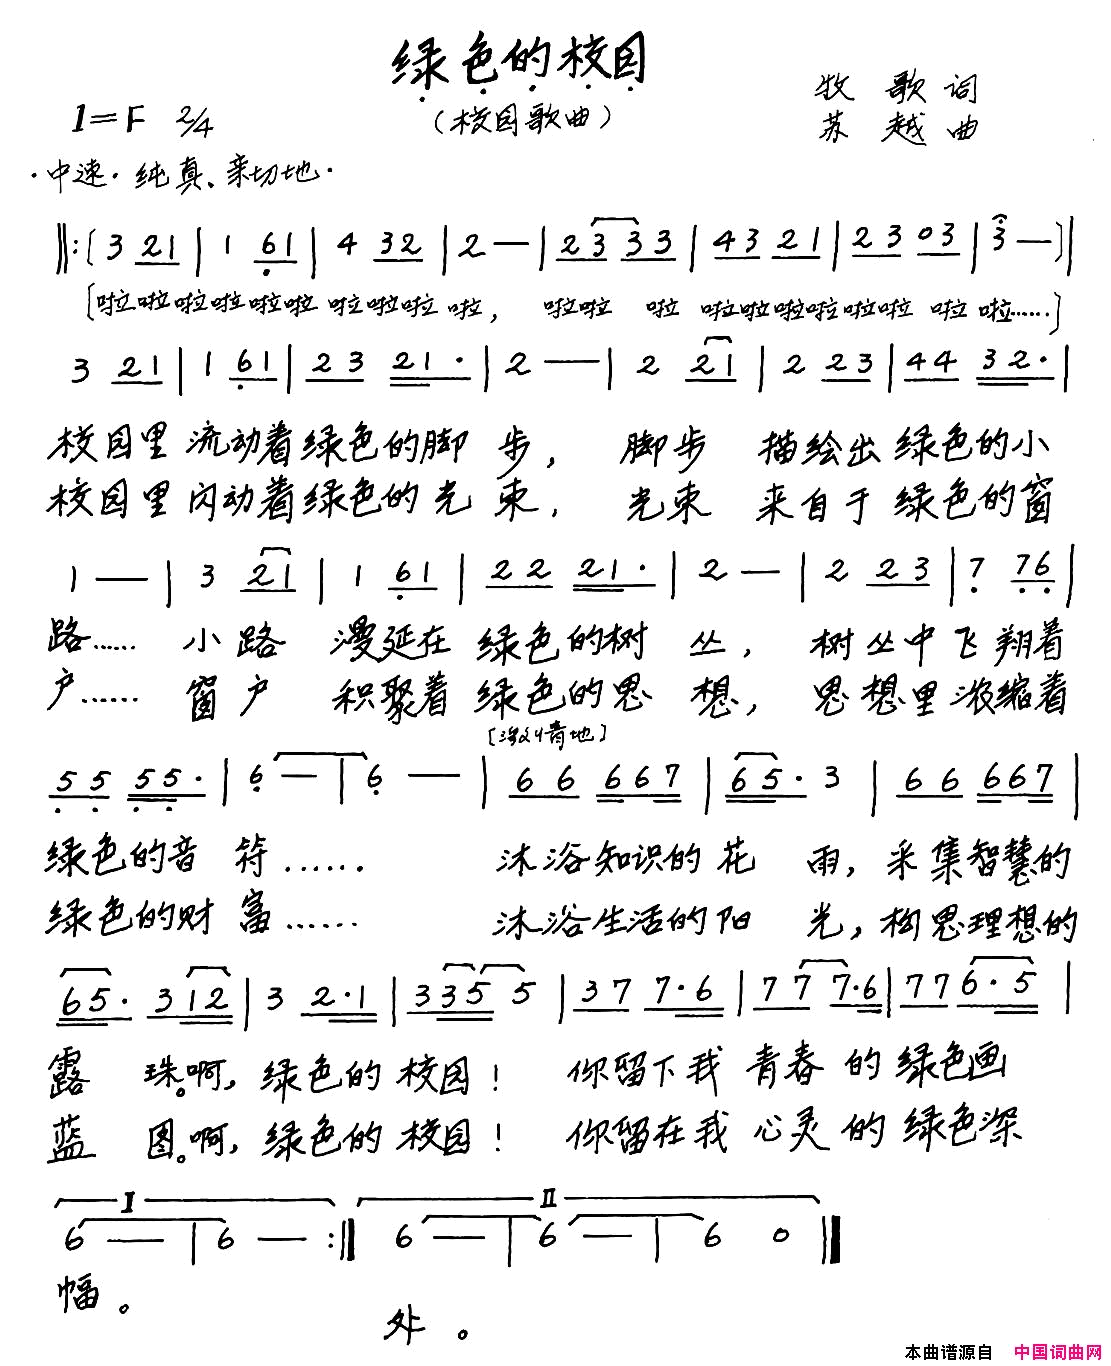 绿色的校园
(校园歌曲)
牧 歌 词
苏 越 曲
1=F 2/4
·中速·纯真、亲切地·
‖:〔3 21 | 1 61 | 4 32 | 2 — | 23 33 | 43 21 | 23 03 | 3 — 〕|
〔啦啦啦啦啦啦 啦啦啦 啦, 啦啦 啦 啦啦啦啦啦啦 啦 啦……〕
3 21 | 1 61 | 23 21· | 2 — | 2 21 | 2 23 | 44 32· |
校园里 流动着绿色的脚 步, 脚步 描绘出 绿色的小
校园里 闪动着绿色的光 束, 光束 来自于 绿色的窗
1 — | 3 21 | 1 61 | 22 21· | 2 — | 2 23 | 7 76 |
路…… 小路 漫延在 绿色的树 丛, 树丛中飞翔着
户…… 窗户 积聚着 绿色的思 想, 思想里浓缩着
55 55· | 6 — | 6 — | 66 667 | 65· 3 | 66 667 |
绿色的音 符…… 沐浴知识的花 雨, 采集智慧的
绿色的财 富…… 沐浴生活的阳 光, 构思理想的
65· 312 | 3 2·1 | 335 5 | 37 7·6 | 77 7·6 | 77 6·5 |
露 珠。啊, 绿色的 校园! 你留下我 青春 的 绿色画
蓝 图。啊, 绿色的 校园! 你留在我 心灵 的 绿色深
I II
6 — | 6 — :‖ 6 — | 6 — | 6 0 ‖
幅。
处。
本曲谱源自 中国词曲网